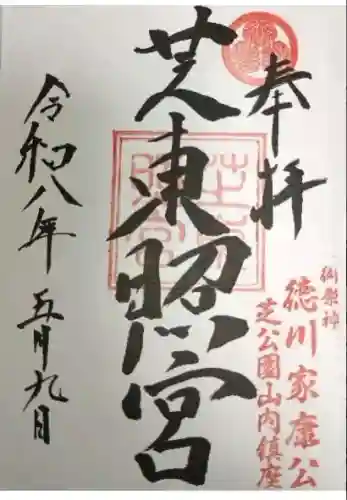 奉拝
御祭神
徳川家康公
芝公園山内鎮座
芝東照宮
令和八年 五月九日